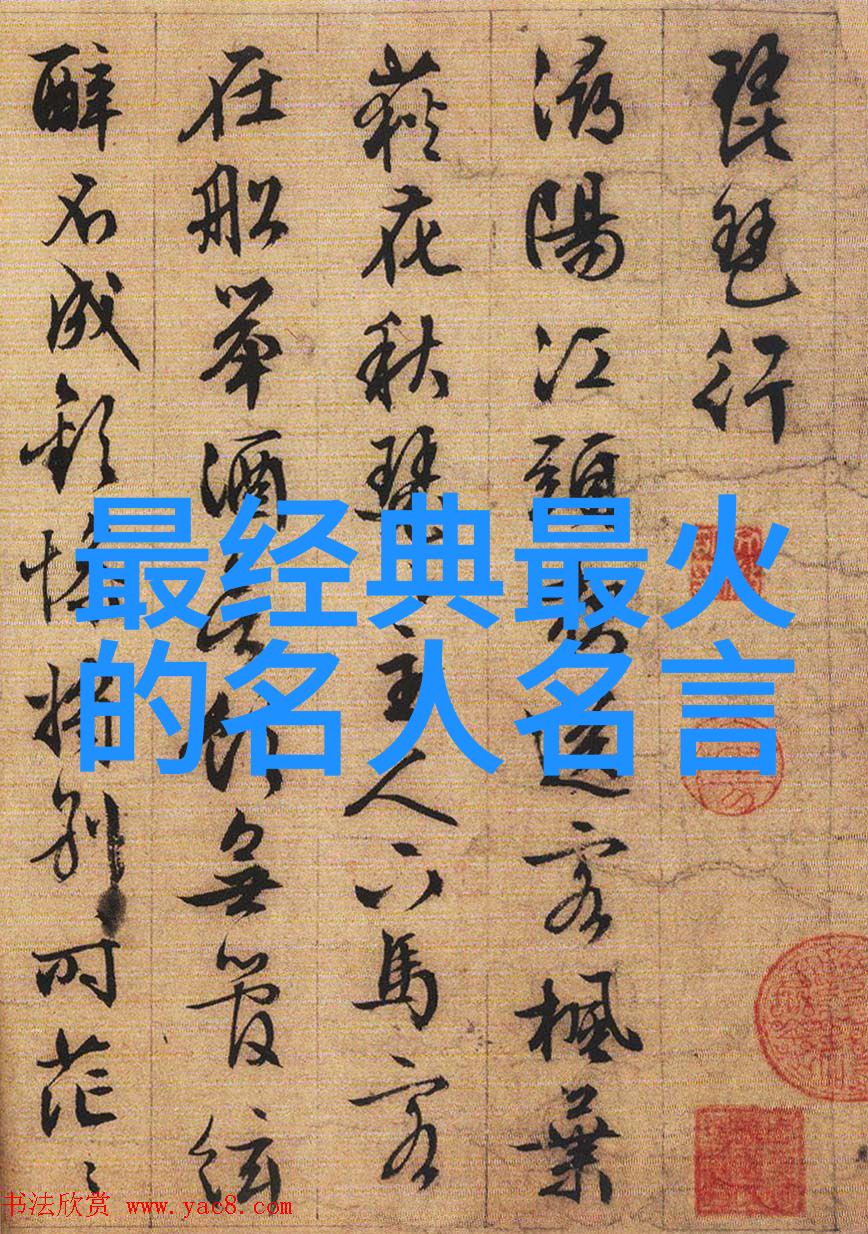 琵琶行
潯陽江頭夜送客楓葉
荻花秋瑟〻主人下馬客
在船舉酒欲飲無管絃
醉不成歡慘將別〻時茫〻
最经典最火
的名人名言
书法欣赏 www.yac8.com